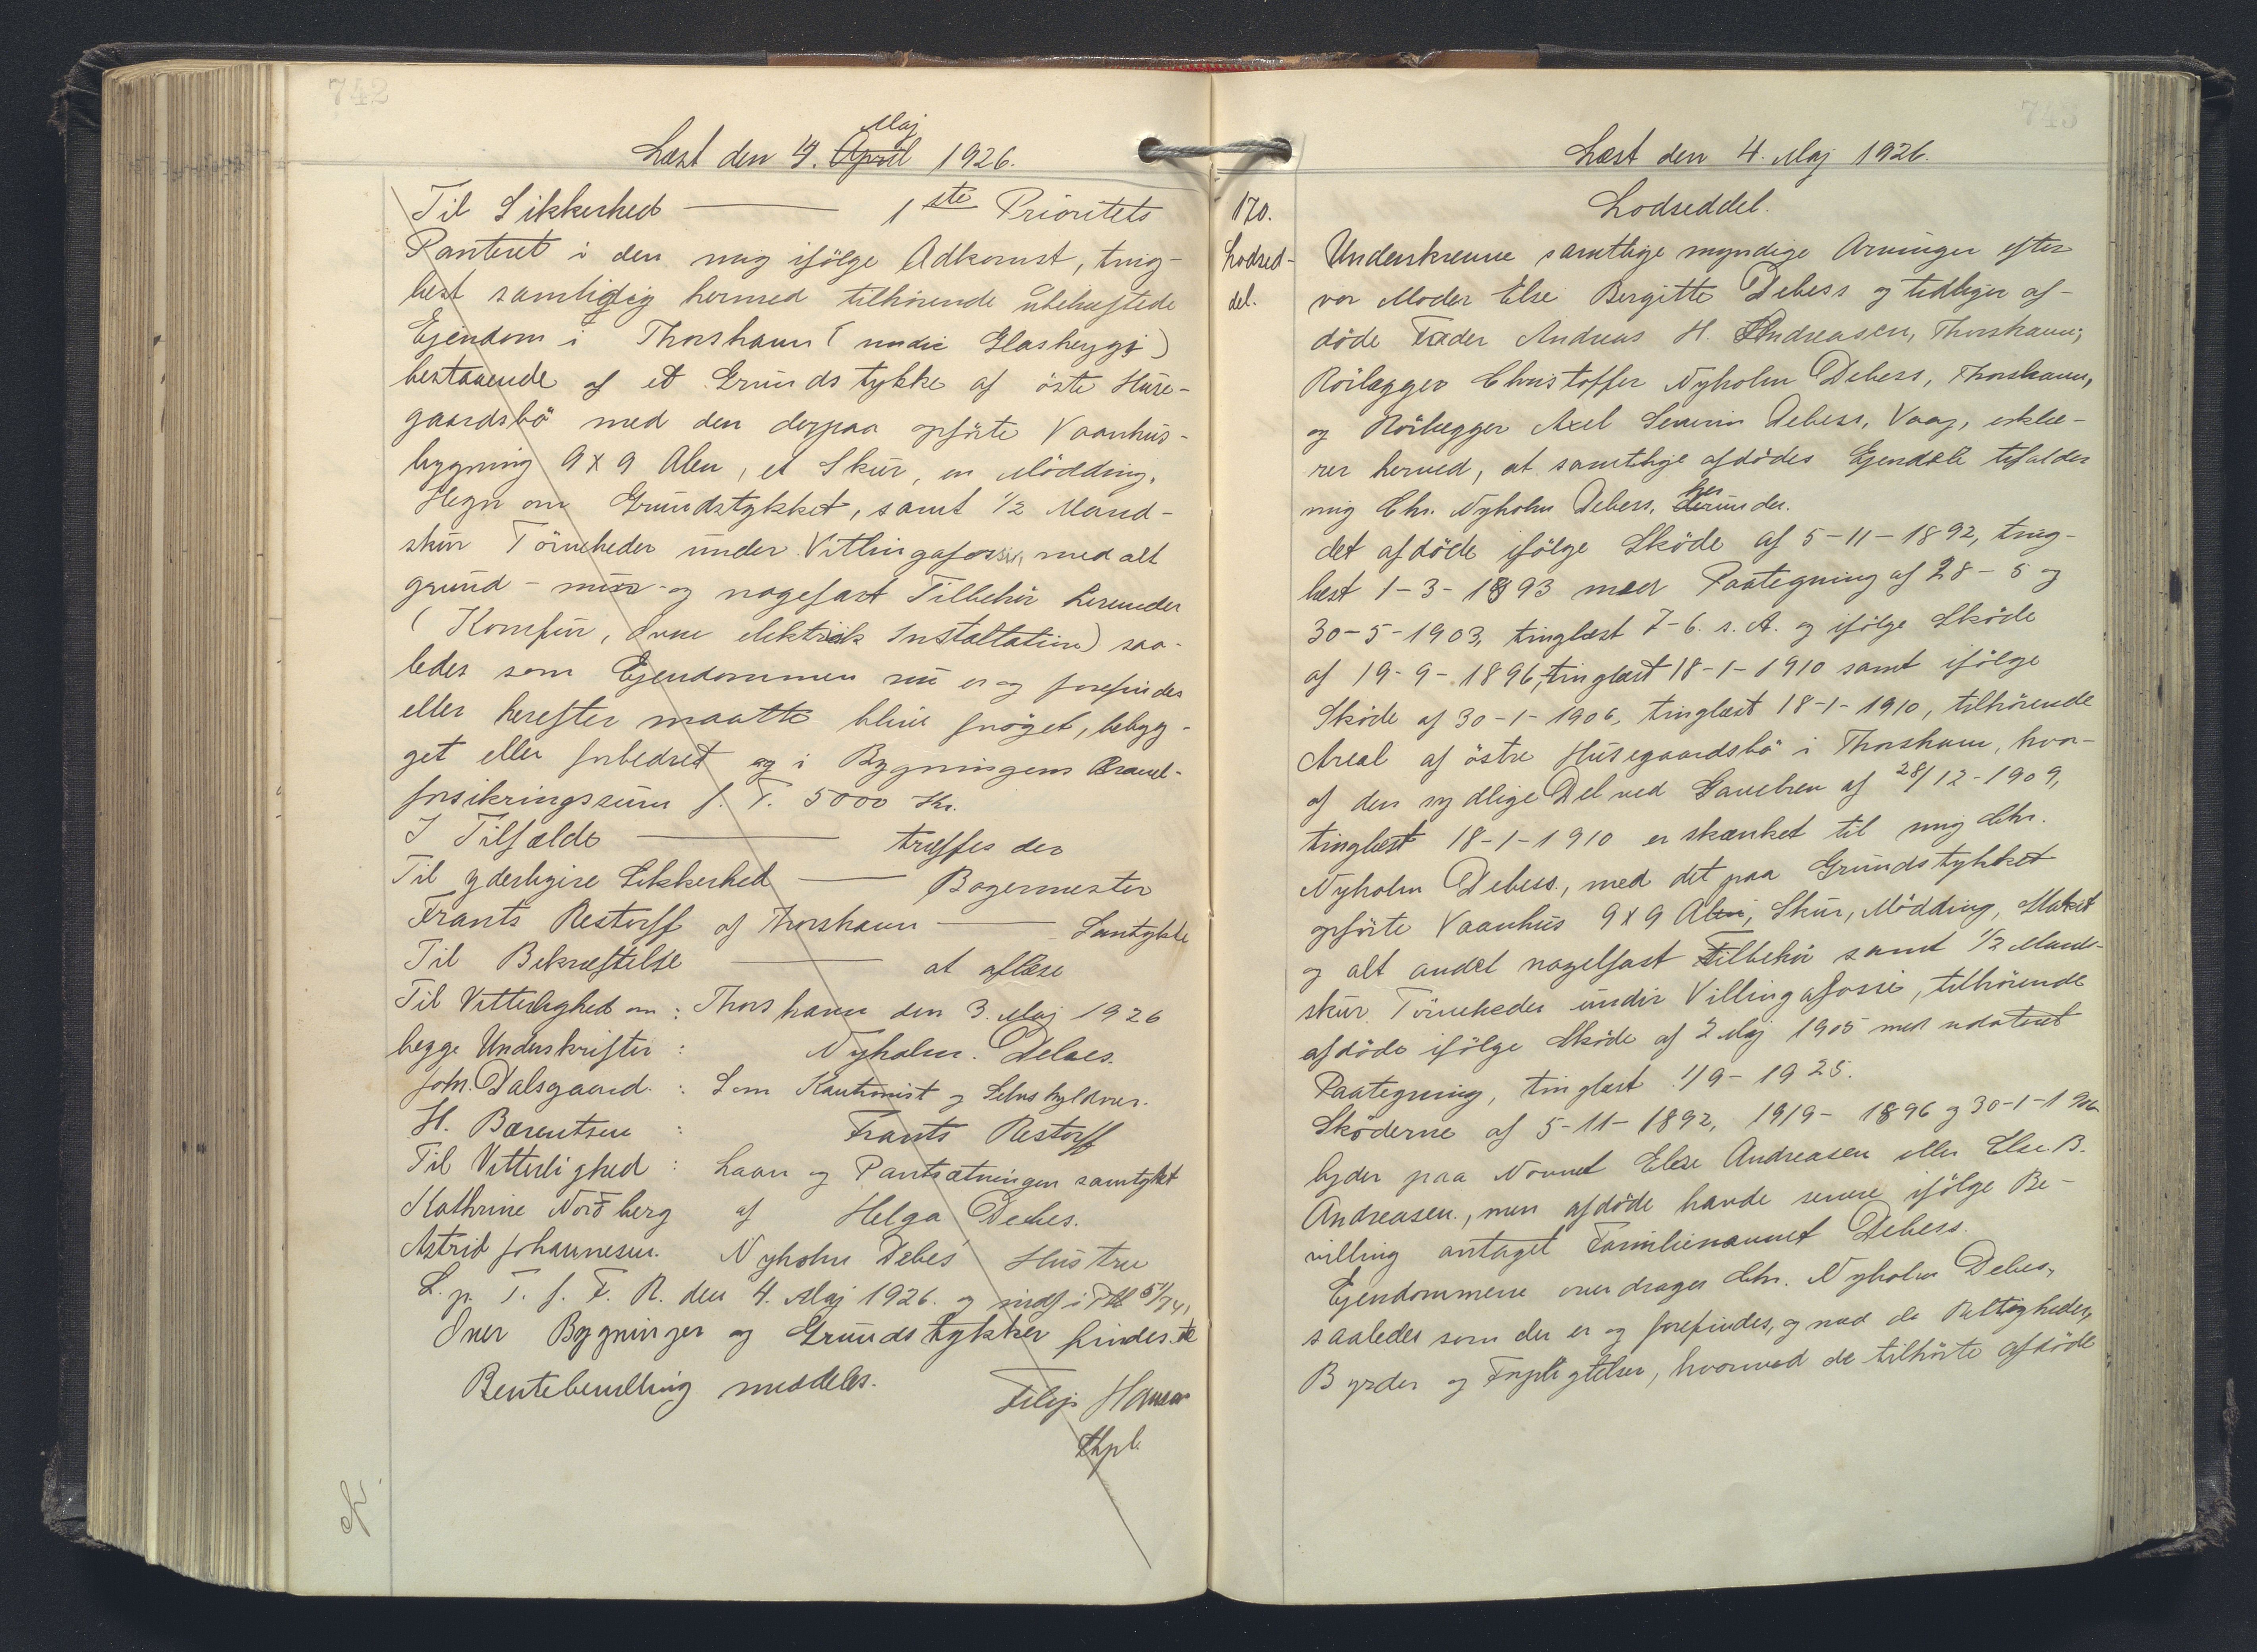 742
Læst den 4. April Maj 1926.
Til Sikkerhed ——— 1ste Prioritets
Panteret i den mig ifölge Adkomst, ting-
læst samtidig hermed tilhörende ubehæftede
Ejendom i Thorshavn (undir Glasbyggi)
bestaaende af et Grundstykke af öste Huse-
gaardsbö med den derpaa opförte Vaanhus-
bygning 9 x 9 Alen, et Skur, en Mödding,
Hegn om Grundstykket, samt 1/2 Mand-
skur Törveheder under Villingafossi, med alt
grund- mur- og nagefast Tilbehör herunder
(Komfur, Ovne elektrisk Installation) saa-
ledes som Ejendommen nu er og forefindes
eller herefter maatte blive foröget, bebyg-
get eller forbedret og i Bygningens Brand-
forsikringssum f. T. 5000 Kr.
I Tilfælde ——— træffes der
Til yderligere Sikkerhed ——— Bagermester
Frants Restorff af Thorshavn ——— Samtykke
Til Bekræftelse ——— at aflæse
Til Vitterlighed om : Thorshavn den 3. Maj 1926
begge Underskrifter : Nyholm Debes.
Joh. Dalsgaard. : Som Kautionist og Selvskyldner.
H. Bærentsen : Frants Restorff
Til Vitterlighed : Laan og Pantsætningen samtykket
Kathrine Nordberg af Helga Debes.
Astrid Johannesen. Nyholm Debes' Hustru
L. p. T. f. F. R. den 4. Maj 1926. og indf. i
Over Bygninger og Grundstykker findes
Rentebevilling meddeles.
Filip Hansen
cfr.
743
Læst den 4. Maj 1926.
Lodseddel.
170.
Lodsed-
del.
Underskrevne samtlige myndige Arvinger efter
vor Moder Else Bergitte Debess og tidligere af-
döde Fader Andreas H. Andreasen, Thorshavn;
Rörlægger Christoffer Nyholm Debess, Thorshavn,
og Rörlægger Axel Severin Debess, Vaag, erklæ-
rer herved, at samtlige afdödes Ejendele tilfalder
mig Chr. Nyholm Debess, herunder.
det afdöde ifölge Sköde af 5-11-1892, ting-
læst 1-3-1893 med Paategning af 28-5 og
30-5-1903, tinglæst 7-6. s. A. og ifölge Sköde
af 19-9-1896, tinglæst 18-1-1910 samt ifölge
Sköde af 30-1-1906, tinglæst 18-1-1910, tilhörende
Areal af östre Husegaardsbö i Thorshavn, hvor-
af den sydlige Del ved Gavebrev af 28/12-1909,
tinglæst 18-1-1910 er skænket til mig Chr.
Nyholm Debess, med det paa Grundstykket
opförte Vaanhus 9 x 9 Alen, Skur, Mödding, Stakit
og alt andet nagelfast Tilbehör samt 1/2 Mands-
skur Törveheder undir Villingafossi, tilhörende
afdöde ifölge Sköde af 2 Maj 1905 med udateret
Paategning, tinglæst 1/9-1925.
Sköderne af 5-11-1892, 19/9-1896 og 30-1-1906
lyder paa Navnet Else Andreasen eller Else B.
Andreasen, men afdöde havde senere ifölge Be-
villing antaget Familienavnet Debess.
Ejendommene overdrages Chr. Nyholm Debes,
saaledes som de er og forefindes, og med de Rettigheder,
Byrder og Forpligtelser, hvormed de tilhörte afdöde